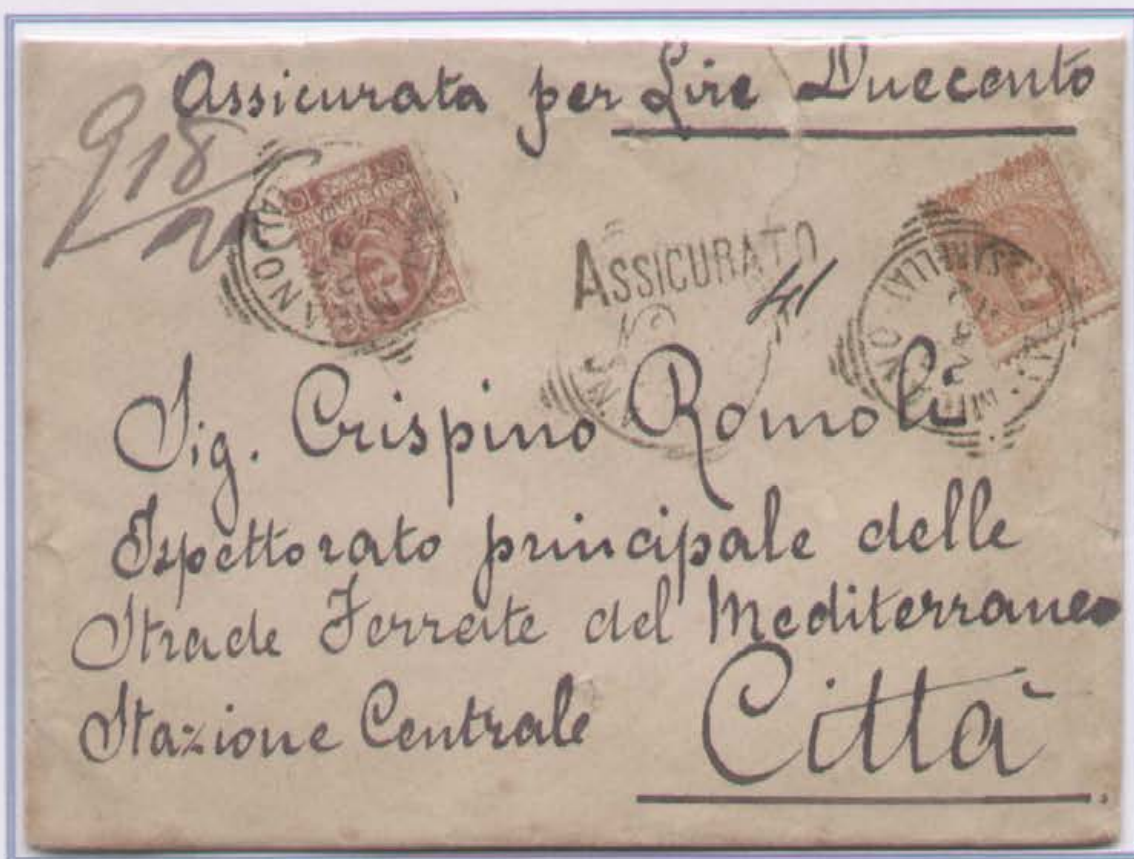 Assicurata per Lire Duecento
918
ASSICURATO
41
Sig. Crispino Romoli
Ispettorato principale delle
Strade Ferrate del Mediterraneo
Stazione Centrale
Città